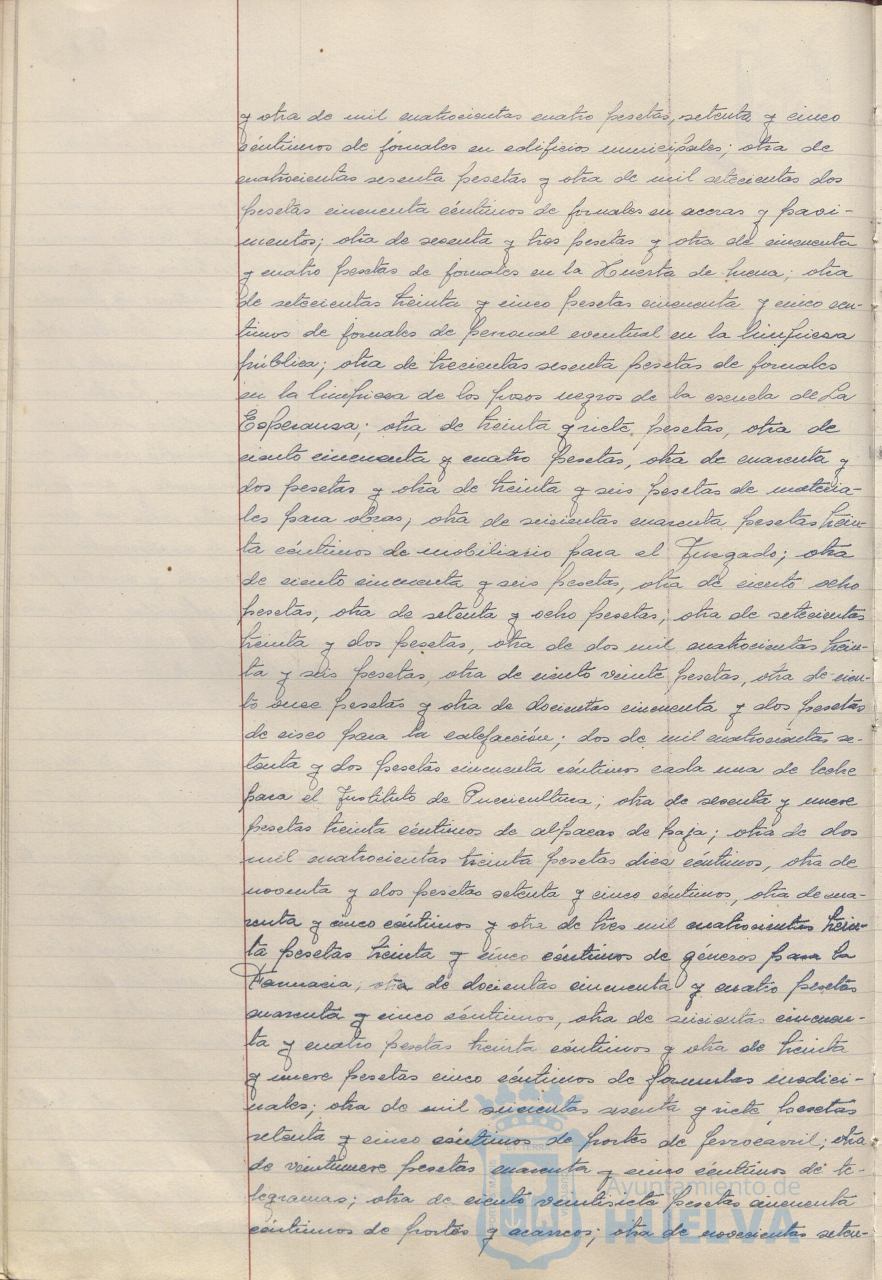 y otra de mil cuatrocientas cuatro pesetas, setenta y cinco
céntimos de jornales en edificios municipales; otra de
cuatrocientas sesenta pesetas y otra de mil setecientas dos
pesetas cincuenta céntimos de jornales en aceras y pavi-
mentos; otra de sesenta y tres pesetas y otra de cincuenta
y cuatro pesetas de jornales en la Huerta de Mena; otra
de setecientas treinta y cinco pesetas cincuenta y cinco cén-
timos de jornales de personal eventual en la limpieza
pública; otra de trecientas sesenta pesetas de jornales
en la limpieza de los pozos negros de la escuela de La
Esperanza; otra de treinta y siete, pesetas, otra de
ciento cincuenta y cuatro pesetas, otra de cuarenta y
dos pesetas y otra de treinta y seis pesetas de materia-
les para obras; otra de seicientas cuarenta pesetas trein-
ta céntimos de mobiliario para el Juzgado; otra
de ciento cincuenta y seis pesetas, otra de ciento ocho
pesetas, otra de setenta y ocho pesetas, otra de setecientas
treinta y dos pesetas, otra de dos mil cuatrocientas trein-
ta y seis pesetas, otra de ciento veinte pesetas, otra de cien-
to once pesetas y otra de docientas cincuenta y dos pesetas
de cisco para la calefacción; dos de mil cuatrocientas se-
tenta y dos pesetas cincuenta céntimos cada una de leche
para el Instituto de Puericultura; otra de sesenta y nueve
pesetas treinta céntimos de alpacas de paja; otra de dos
mil cuatrocientas treinta pesetas diez céntimos, otra de
noventa y dos pesetas setenta y cinco céntimos, otra de cua-
renta y cinco céntimos y otra de tres mil cuatrocientas trein-
ta pesetas treinta y cinco céntimos de géneros para la
Farmacia; otra de docientas cincuenta y cuatro pesetas
cuarenta y cinco céntimos, otra de seicientas cincuen-
ta y cuatro pesetas treinta céntimos y otra de treinta
y nueve pesetas cinco céntimos de formulas medici-
nales; otra de mil seicientas sesenta y siete pesetas
setenta y cinco céntimos de portes de ferrocarril; otra
de veintinueve pesetas cuarenta y cinco céntimos de te-
legramas; otra de ciento veintisiete pesetas cincuenta
céntimos de portes y acarreos; otra de novecientas seten-
Ayuntamiento de
HUELVA